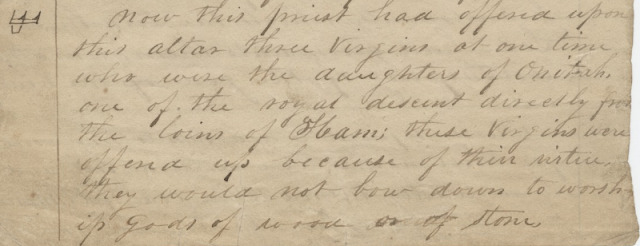 now this priest had offered upon
this altar three virgins at one time
who were the daughters of Onitah,
one of the royal descent directly from
the loins of Ham; these virgins were
offered up because of their virtue,
they would not bow down to worsh
ip gods of wood or of stone,